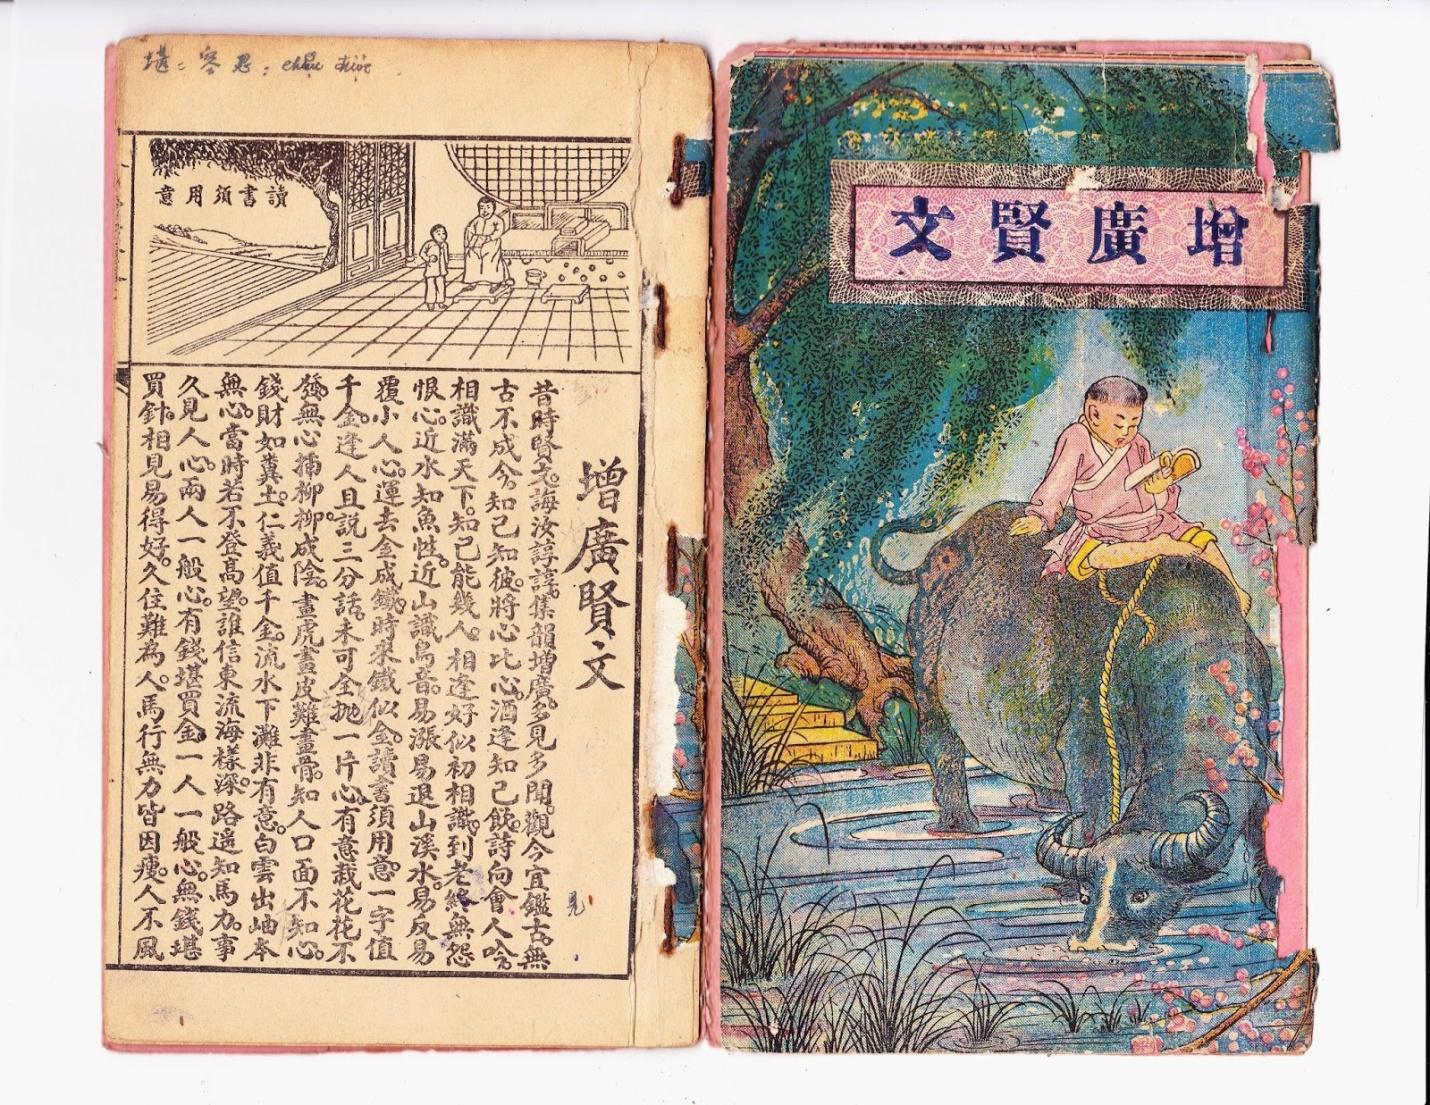 chịu được
讀書須用意
增廣賢文
昔時賢文。誨汝諄諄。集韻增廣。多見多聞。觀今宜鑑古。無
古不成今。知己知彼。將心比心。酒逢知己飲。詩向會人吟。
相識滿天下。知己能幾人。相逢好似初相識。到老終無怨
恨心。近水知魚性。近山識鳥音。易漲易退山溪水。易反易
覆小人心。運去金成鐵。時來鐵似金。讀書須用意。一字值
千金。逢人且説三分話。未可全拋一片心。有意栽花花不
發。無心插柳柳成陰。畫虎畫皮難畫骨。知人口面不知心。
錢財如糞土。仁義值千金。流水下灘非有意。白雲出岫本
無心。當時若不登高望。誰信東流海樣深。路遥知馬力。事
久見人心。兩人一般心。有錢堪買金。一人一般心。無錢堪
買針。相見易得好。久住難為人。馬行無力皆因瘦。人不風
見
增廣賢文